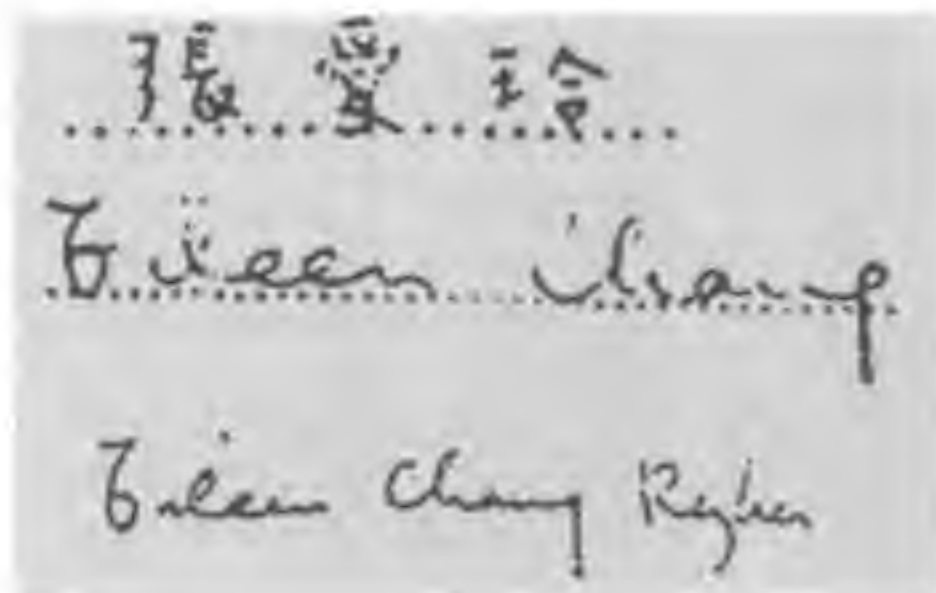 張愛玲
Eileen Chang
Eileen Chang Reyher